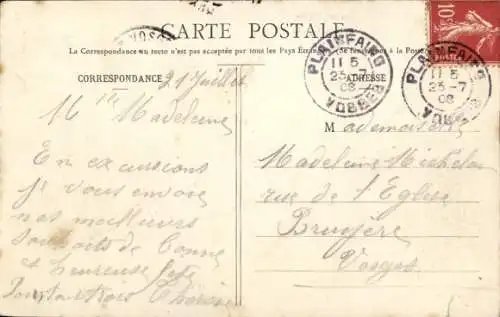 CARTE POSTALE
La Correspondance au recto n'est pas acceptée par tous les Pays Étrangers (Se renseigner à la Poste)
CORRESPONDANCE
ADRESSE
PLAINFAING
11 5
23 -7
08
VOSGES
PLAINFAING
11 5
23 -7
08
VOSGES
10c
POSTES
VOSGES
21 Juillet
Mlle Madeleine
En excursions
je vous envoie
nos meilleurs
souhaits de bonne
et heureuse fête
Mademoiselle
Madeleine Michelon
rue de l'Eglise
Bruyère
Vosges